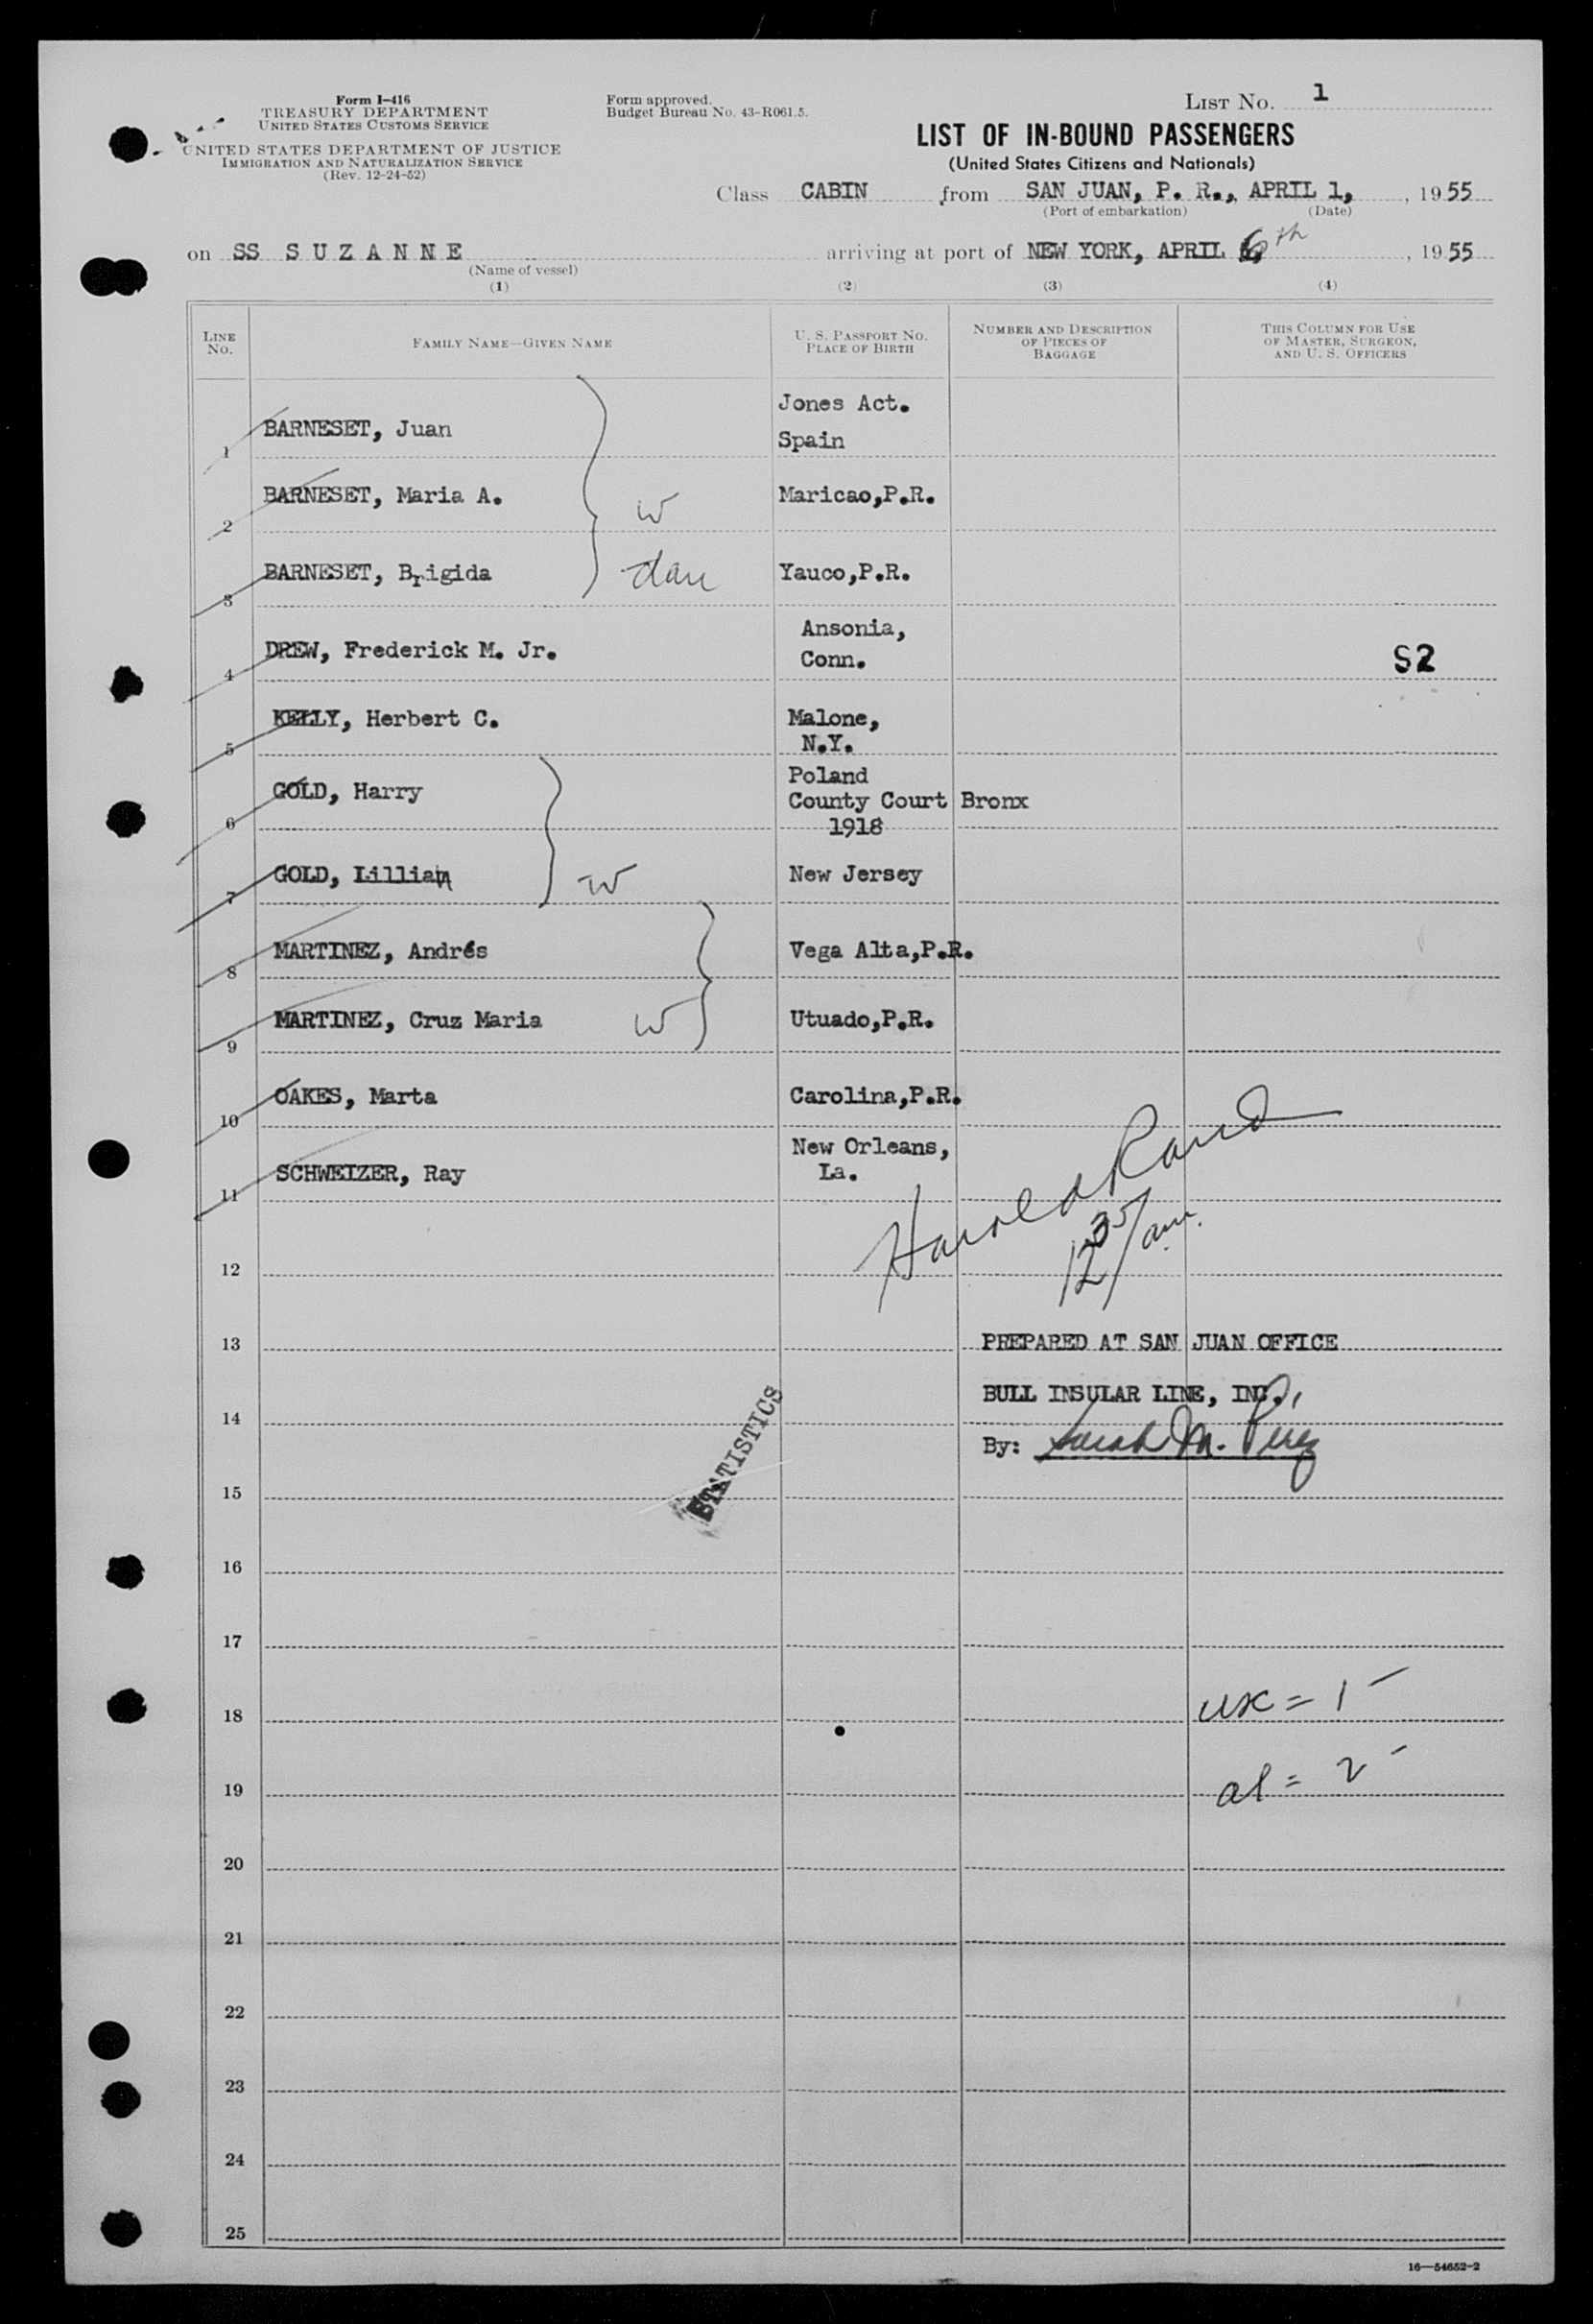 Form I-416
TREASURY DEPARTMENT
UNITED STATES CUSTOMS SERVICE
UNITED STATES DEPARTMENT OF JUSTICE
IMMIGRATION AND NATURALIZATION SERVICE
(Rev. 12-24-52)
Form approved.
Budget Bureau No. 43-R061.5.
LIST NO. 1
LIST OF IN-BOUND PASSENGERS
(United States Citizens and Nationals)
Class CABIN from SAN JUAN, P. R., APRIL 1, , 1955
(Port of embarkation) (Date)
on SS S U Z A N N E arriving at port of NEW YORK, APRIL 6th , 1955
(Name of vessel)
(1) (2) (3) (4)
LINE NO. FAMILY NAME—GIVEN NAME U. S. PASSPORT NO. PLACE OF BIRTH NUMBER AND DESCRIPTION OF PIECES OF BAGGAGE THIS COLUMN FOR USE OF MASTER, SURGEON, AND U. S. OFFICERS
Jones Act.
1 BARNESET, Juan Spain
2 BARNESET, Maria A. w Maricao,P.R.
3 BARNESET, Brigida dau Yauco,P.R.
Ansonia,
4 DREW, Frederick M. Jr. Conn. S2
5 KELLY, Herbert C. Malone,
N.Y.
Poland
6 GOLD, Harry County Court Bronx
1918
7 GOLD, Lillian w New Jersey
8 MARTINEZ, Andrés Vega Alta,P.R.
9 MARTINEZ, Cruz Maria w Utuado,P.R.
10 OAKES, Marta Carolina,P.R.
New Orleans,
11 SCHWEIZER, Ray La.
Harold Rand
12 35/am.
12
13 PREPARED AT SAN JUAN OFFICE
BULL INSULAR LINE, INC.,
14
By: Sarah M. Perez
STATISTICS
15
16
17
18 usc = 1
19 al = 2
20
21
22
23
24
25
16—54652-2